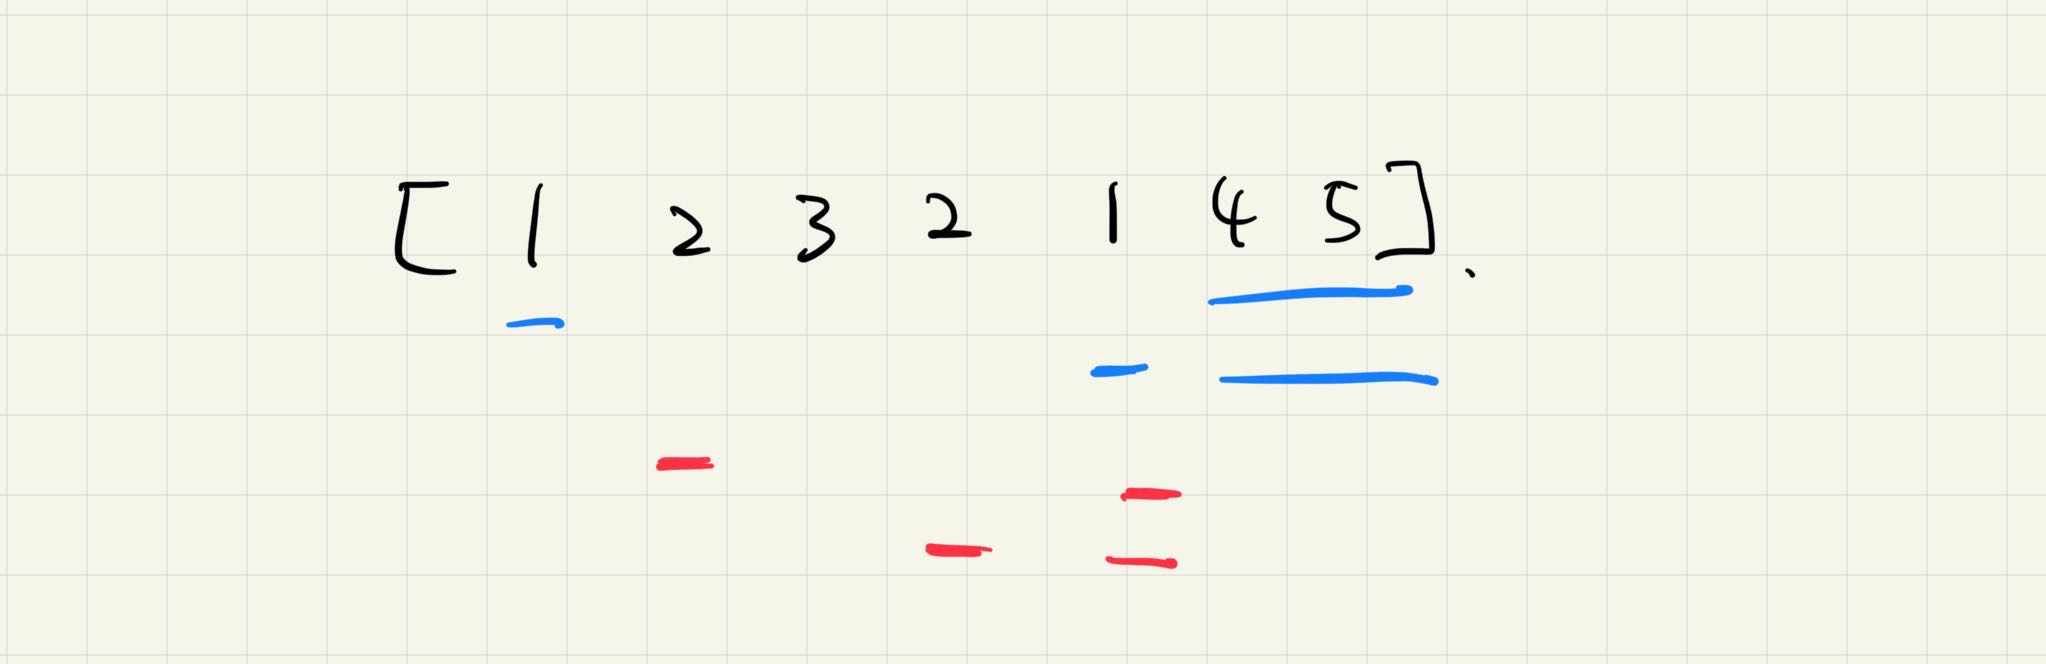 [ 1 2 3 2 1 4 5 ].